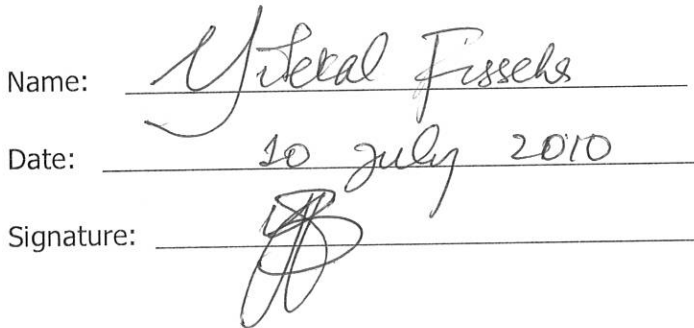 Name: Yitekal Fisseha
Date: 10 July 2010
Signature: